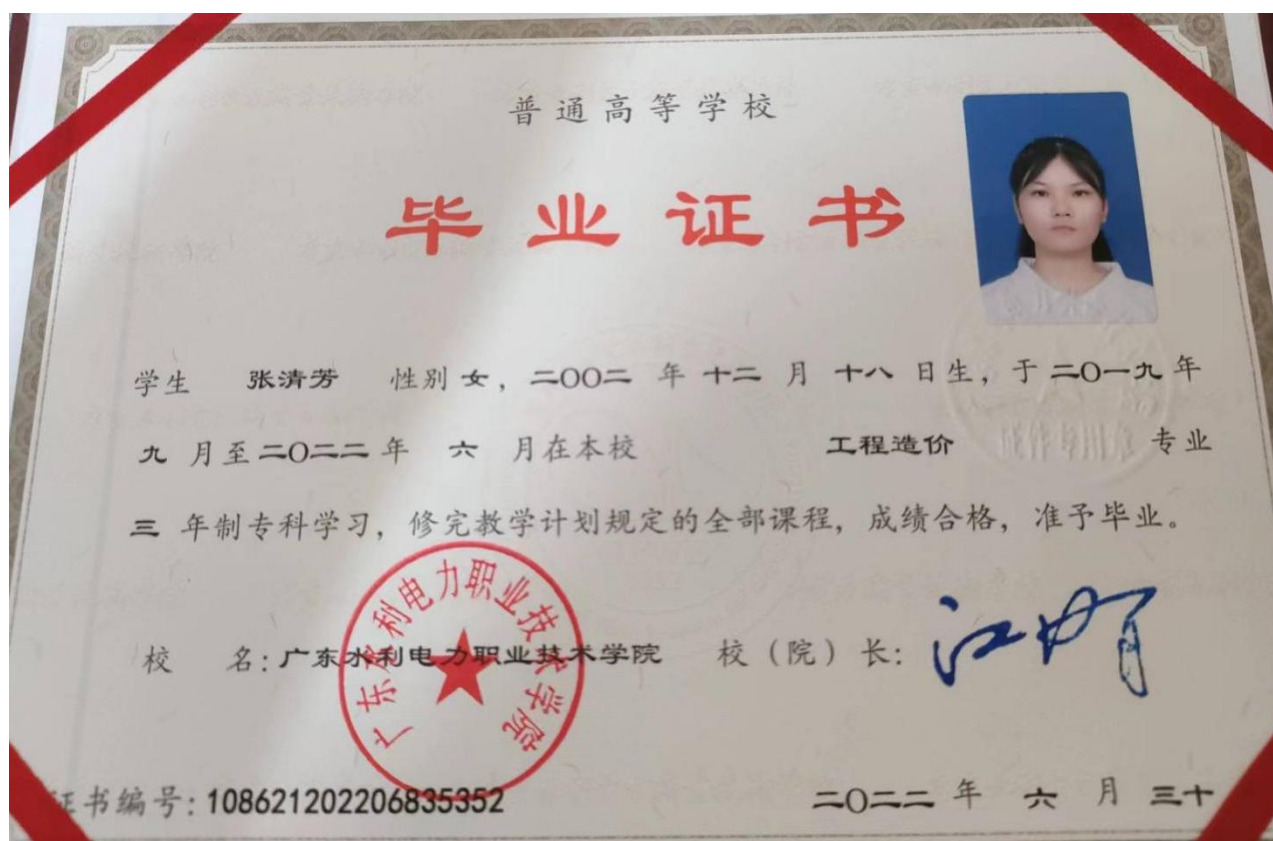 普通高等学校
毕业证书
学生 张清芳 性别 女, 二〇〇二 年 十二 月 十八 日生, 于 二〇一九 年
九 月至 二〇二二 年 六 月在本校 工程造价 专业
三 年制专科学习, 修完教学计划规定的全部课程, 成绩合格, 准予毕业。
校 名: 广东水利电力职业技术学院 校（院）长:
广东水利电力职业技术学院
证书编号: 108621202206835352 二〇二二 年 六 月 三十